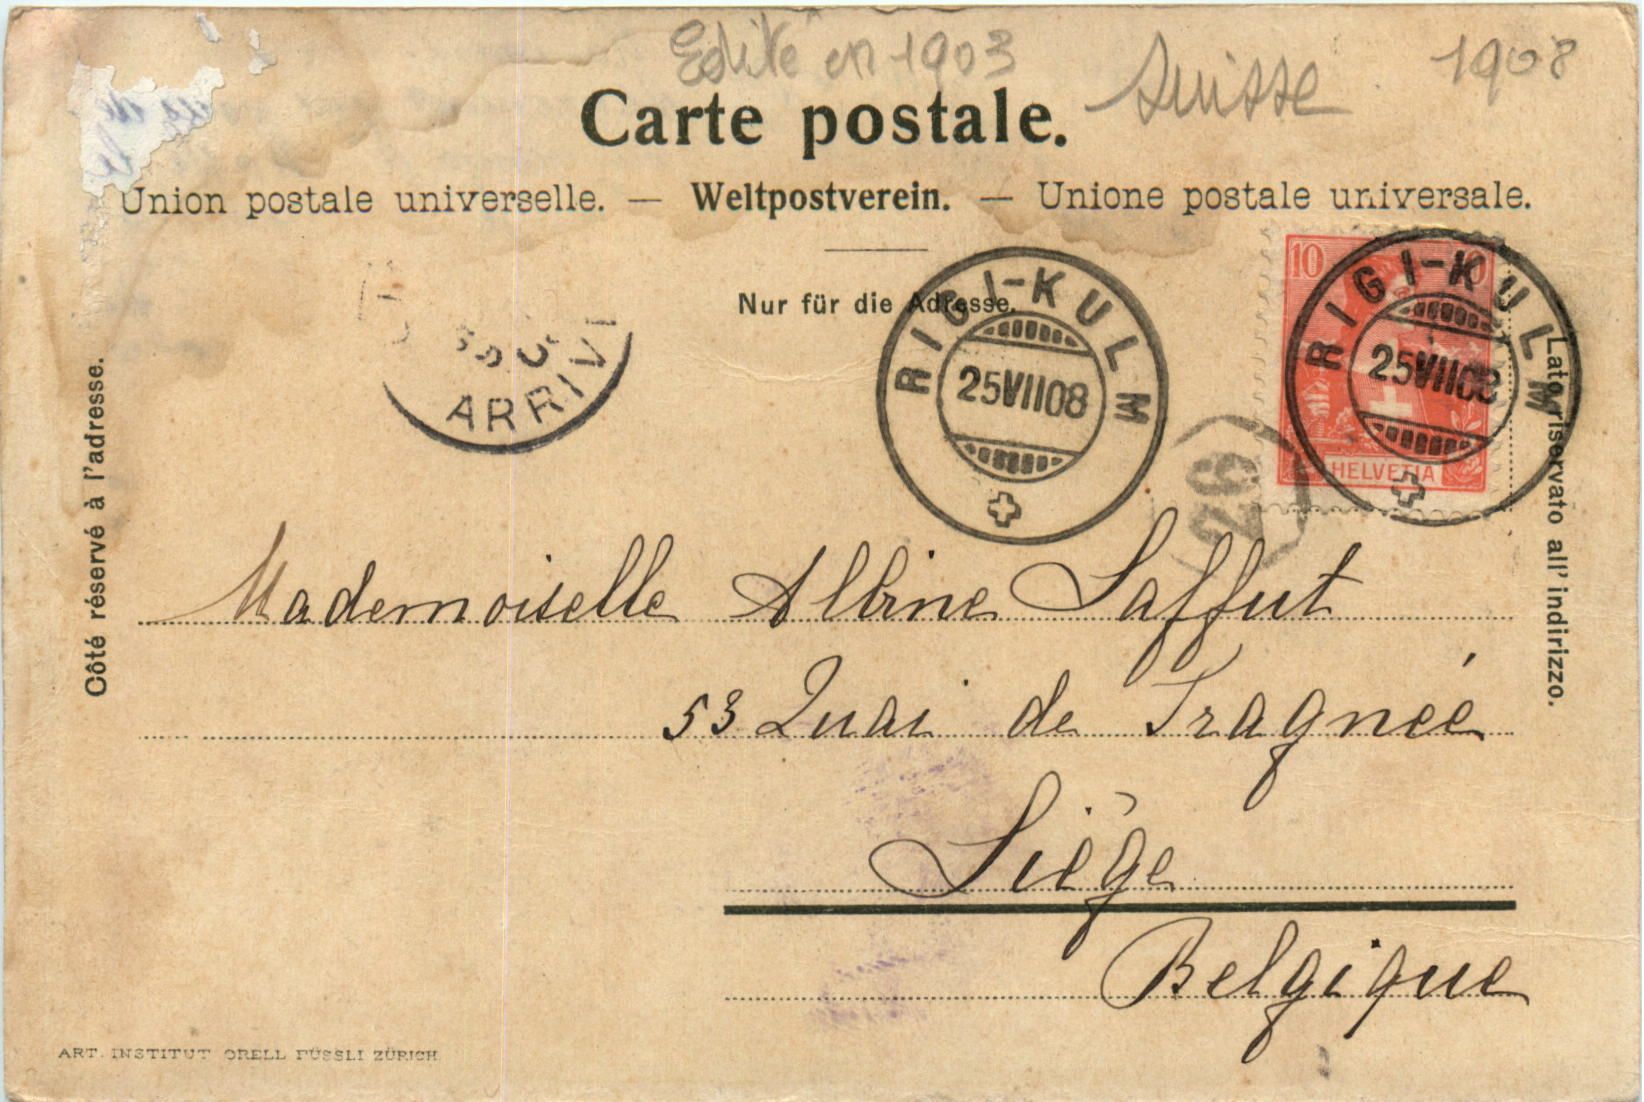 Edité en 1903 Suisse 1908
Carte postale.
Union postale universelle. — Weltpostverein. — Unione postale universale.
Nur für die Adresse.
RIGI-KULM
25VII08
10 10
HELVETIA
RIGI-KULM
25VII08
ARRIV
26
Côté réservé à l'adresse.
Lato riservato all' indirizzo.
Mademoiselle Albine Saffut
53 Quai de Fragnée
Liège
Belgique
ART. INSTITUT ORELL FÜSSLI ZÜRICH